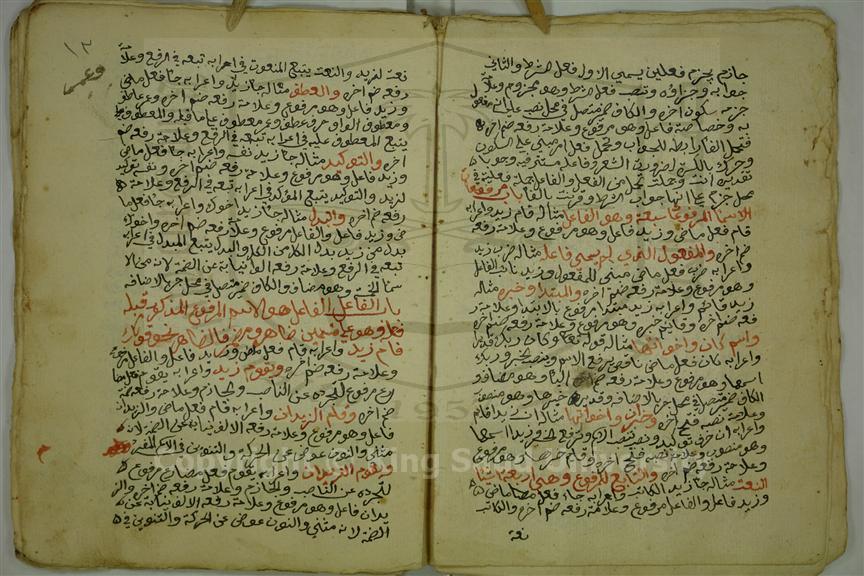 جازم يجزم فعلين يسمى الاول فعل الشرط والثانى
جوابه وجزاؤه وتصب فعل شرط وهو مجزوم وعلامة
جزمه سكون آخره والكاف ضمير متصل فى محل نصب على انه مفعول
به وخصاصة فاعل وهو مرفوع وعلامة رفعه ضم آخره
فتجمل الفا رابطة للجواب وتجمل فعل امر مبنى على السكون
وحرك بالكسرة لضرورة الشعر وفاعله مستتر فيه وجوبا
تقديره انت وجملة تجمل من الفعل والفاعل جملة فعلية فى
محل جزم على انها جواب الشرط وقرنت بالفا باب مرفوعات
الاسما المرفوعات سبعة وهو الفاعل مثاله قام زيد واعرابه
قام فعل ماضى وزيد فاعل وهو مرفوع وعلامة رفعه
ضم اخره والمفعول الذى لم يسمى فاعله مثاله ضرب زيد
واعرابه ضرب فعل ماضى مبنى للمفعول وزيد نائب الفاعل
وهو مرفوع وعلامة رفعه ضم اخره والمبتدا وخبره مثاله
زيد قائم واعرابه زيد مبتدا مرفوع بالابتدا وعلامة ر
فعه ضم اخره وقايم خبره وهو مرفوع وعلامة رفعه ضم اخره
واسم كان واخواتها مثاله قوله تعالى وكان ربك قديرا
واعرابه كان فعل ماضى ناقص يرفع الاسم وينصب الخبر وربك
اسمها وهو مرفوع وعلامة رفعه ضم اخر البا وهو مضاف و
الكاف ضمير متصل فى محل جر بالاضافة وقديرا خبرها وهو منصوب
وعلامة نصبه فتح اخره وخبر ان واخواتها مثاله ان زيدا قائم
واعرابه ان حرف توكيد ونصب تنصب الاسم وترفع الخبر زيدا اسمها
وهو منصوب وعلامة نصبه فتح اخره وقائم خبرها وهو مرفوع
وعلامة رفعه ضم اخره والتابع للمرفوع وهى اربعة اشيا
النعت مثاله جا زيد الكاتب واعرابه جاء فعل ماضى
وزيد فاعل والفاعل مرفوع وعلامة رفعه ضم اخره والكاتب
نعت
١٣
نعت لزيد والنعت يتبع المنعوت فى اعرابه تبعه فى الرفع وعلامة
رفعه ضم اخره والعطف مثاله جا زيد وعمر واعرابه جا فعل ماضى
وزيد فاعل وهو مرفوع وعلامة رفعه ضم اخره وعمر عاطف
ومعطوف الواو حرف عطف وعمر معطوف على ما قبله والمعطوف
يتبع المعطوف عليه فى اعرابه تبعه فى الرفع وعلامة رفعه ضم
اخره والتوكيد مثاله جا زيد نفسه واعرابه جا فعل ماضى
وزيد فاعل وهو مرفوع وعلامة رفعه ضم اخره ونفسه توكيد
لزيد والتوكيد يتبع المؤكد فى اعرابه تبعه فى الرفع وعلامة
رفعه ضم اخره والبدل مثاله جا زيد اخوك واعرابه جا فعل ما
ضى وزيد فاعل والفاعل مرفوع وعلامة رفعه ضم اخره واخوك
بدل من زيد بدل الكل من الكل والبدل يتبع المبدل فى اعرابه
تبعه فى الرفع وعلامة رفعه الواو نيابة عن الضمة لانه من الا
سما الخمسة وهو مضاف والكاف ضمير متصل فى محل جر بالاضافة
باب الفاعل الفاعل هو الاسم المرفوع المذكور قبله
فعله وهو على قسمين ظاهر ومضمر فالظاهر نحو قولك
قام زيد واعرابه قام فعل ماضى وزيد فاعل والفاعل مرفوع
وعلامة رفعه ضم اخره ويقوم زيد واعرابه يقوم فعل مضا
رع مرفوع لتجرده عن الناصب والجازم وعلامة رفعه ضمة
ضم اخره وقام الزيدان واعرابه قام فعل ماضى والزيدان
فاعل وهو مرفوع وعلامة رفعه الالف نيابة عن الضمة لانه
مثنى والنون عوض عن الحركة والتنوين فى الاسم المفرد
ويقوم الزيدان واعرابه يقوم فعل مضارع مرفوع
لتجرده عن الناصب والجازم وعلامة رفعه ضم اخره والز
يدان فاعل وهو مرفوع وعلامة رفعه الالف نيابة عن
الضمة لانه مثنى والنون عوض عن الحركة والتنوين فى